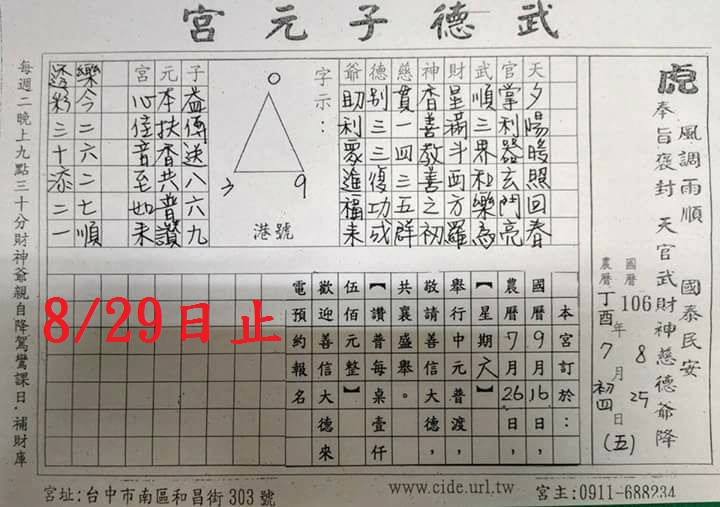 武德子元宮
虎
風調雨順 國泰民安
奉旨褒封 天官武財神慈德爺降
國曆 106年8月25日(五)
農曆 丁酉7月初四
天夕陽暖照回春
官掌利器玄門亮
武順三界和樂為
財星滿斗西方羅
神杏善教善之初
慈貫一回三五群
德別三三復功成
爺助利眾進福來
字示：
0
9
港號
子益傳送八六九
元本扶香共普讚
宮心佳音至如來
樂今二六二七順
透彩三十添二一
本宮訂於：
國曆9月16日，
農曆7月26日，
【星期六】
舉行中元普渡，
敬請善信大德，
共襄盛舉。
【讚普每桌壹仟
伍佰元整】
歡迎善信大德來
電預約報名
8/29日止
每週二晚上九點三十分財神爺親自降駕鸞課日．補財庫
宮址:台中市南區和昌街303號
www.cide.url.tw
宮主:0911-688234